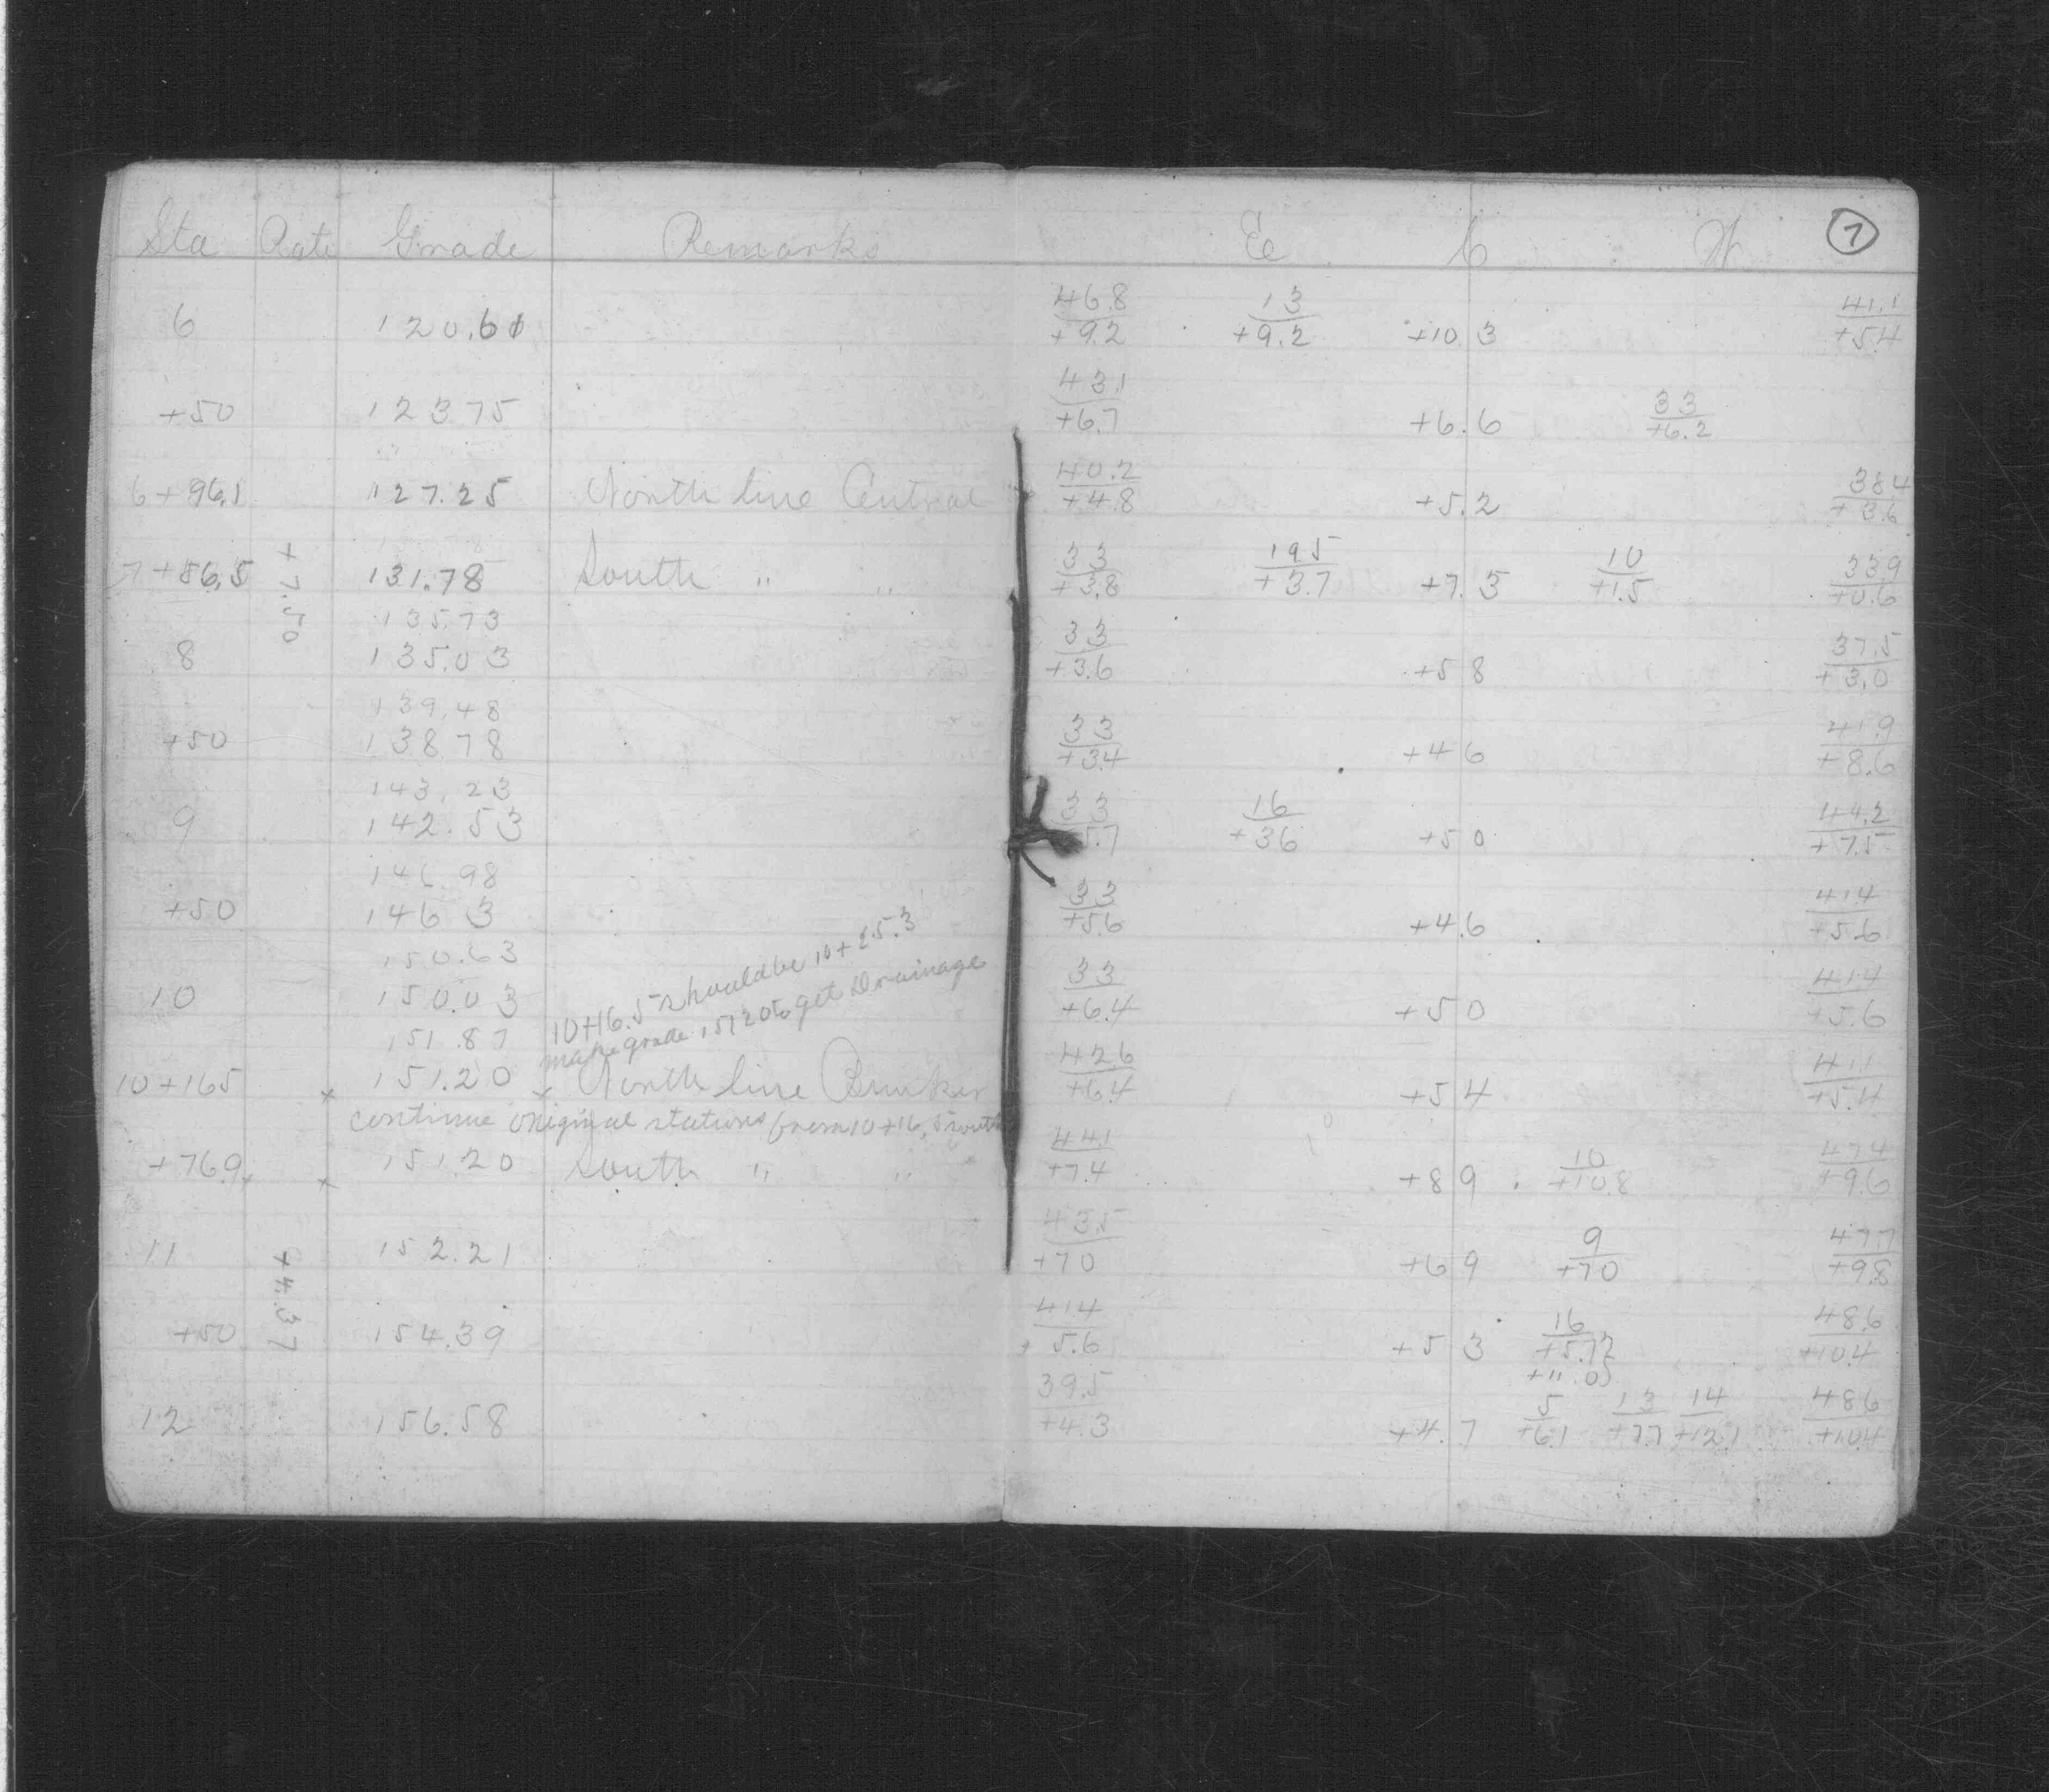 Sta Rate Grade Remarks E C W 7
6 120.61 46.8/+9.2 13/+9.2 +10.3 41.1/+5.4
+50 123.75 43.1/+6.7 +6.6 33/+6.2
6+96.1 127.25 North line Central 40.2/+4.8 +5.2 38.4/+3.6
+7.50
7+86.5 131.78 South " " 33/+3.8 19.5/+3.7 +7.3 10/+1.5 33.9/+0.6
135.73
8 135.03 33/+3.6 +5.8 37.5/+3.0
139.48
+50 138.78 33/+3.4 +4.6 41.9/+8.6
143.23
9 142.53 33/5.7 16/+3.6 +5.0 44.2/+7.5
146.98
+50 146 3 33/+5.6 +4.6 41.4/+5.6
150.63
10 150.03 33/+6.4 +5.0 41.4/+5.6
10+16.5 should be 10+25.3
make grade 151.20 to get Drainage
151.87
10+16.5 x 151.20 x North line Bunker 42.6/+6.4 +5.4 41.1/+5.4
continue original stations from 10+16.5 south
+76.9 x 151.20 South " " 44.1/+7.4 +8.9 10/+10.8 47.4/+9.6
11 152.21 43.5/+7.0 +6.9 9/+7.0 47.7/+9.8
+4.37
+50 154.39 41.4/+5.6 +5.3 16/+5.72 48.6/+10.4
+11.0
12 156.58 39.5/+4.3 +4.7 5/+6.1 13/+7.7 14/+12.1 48.6/+10.4